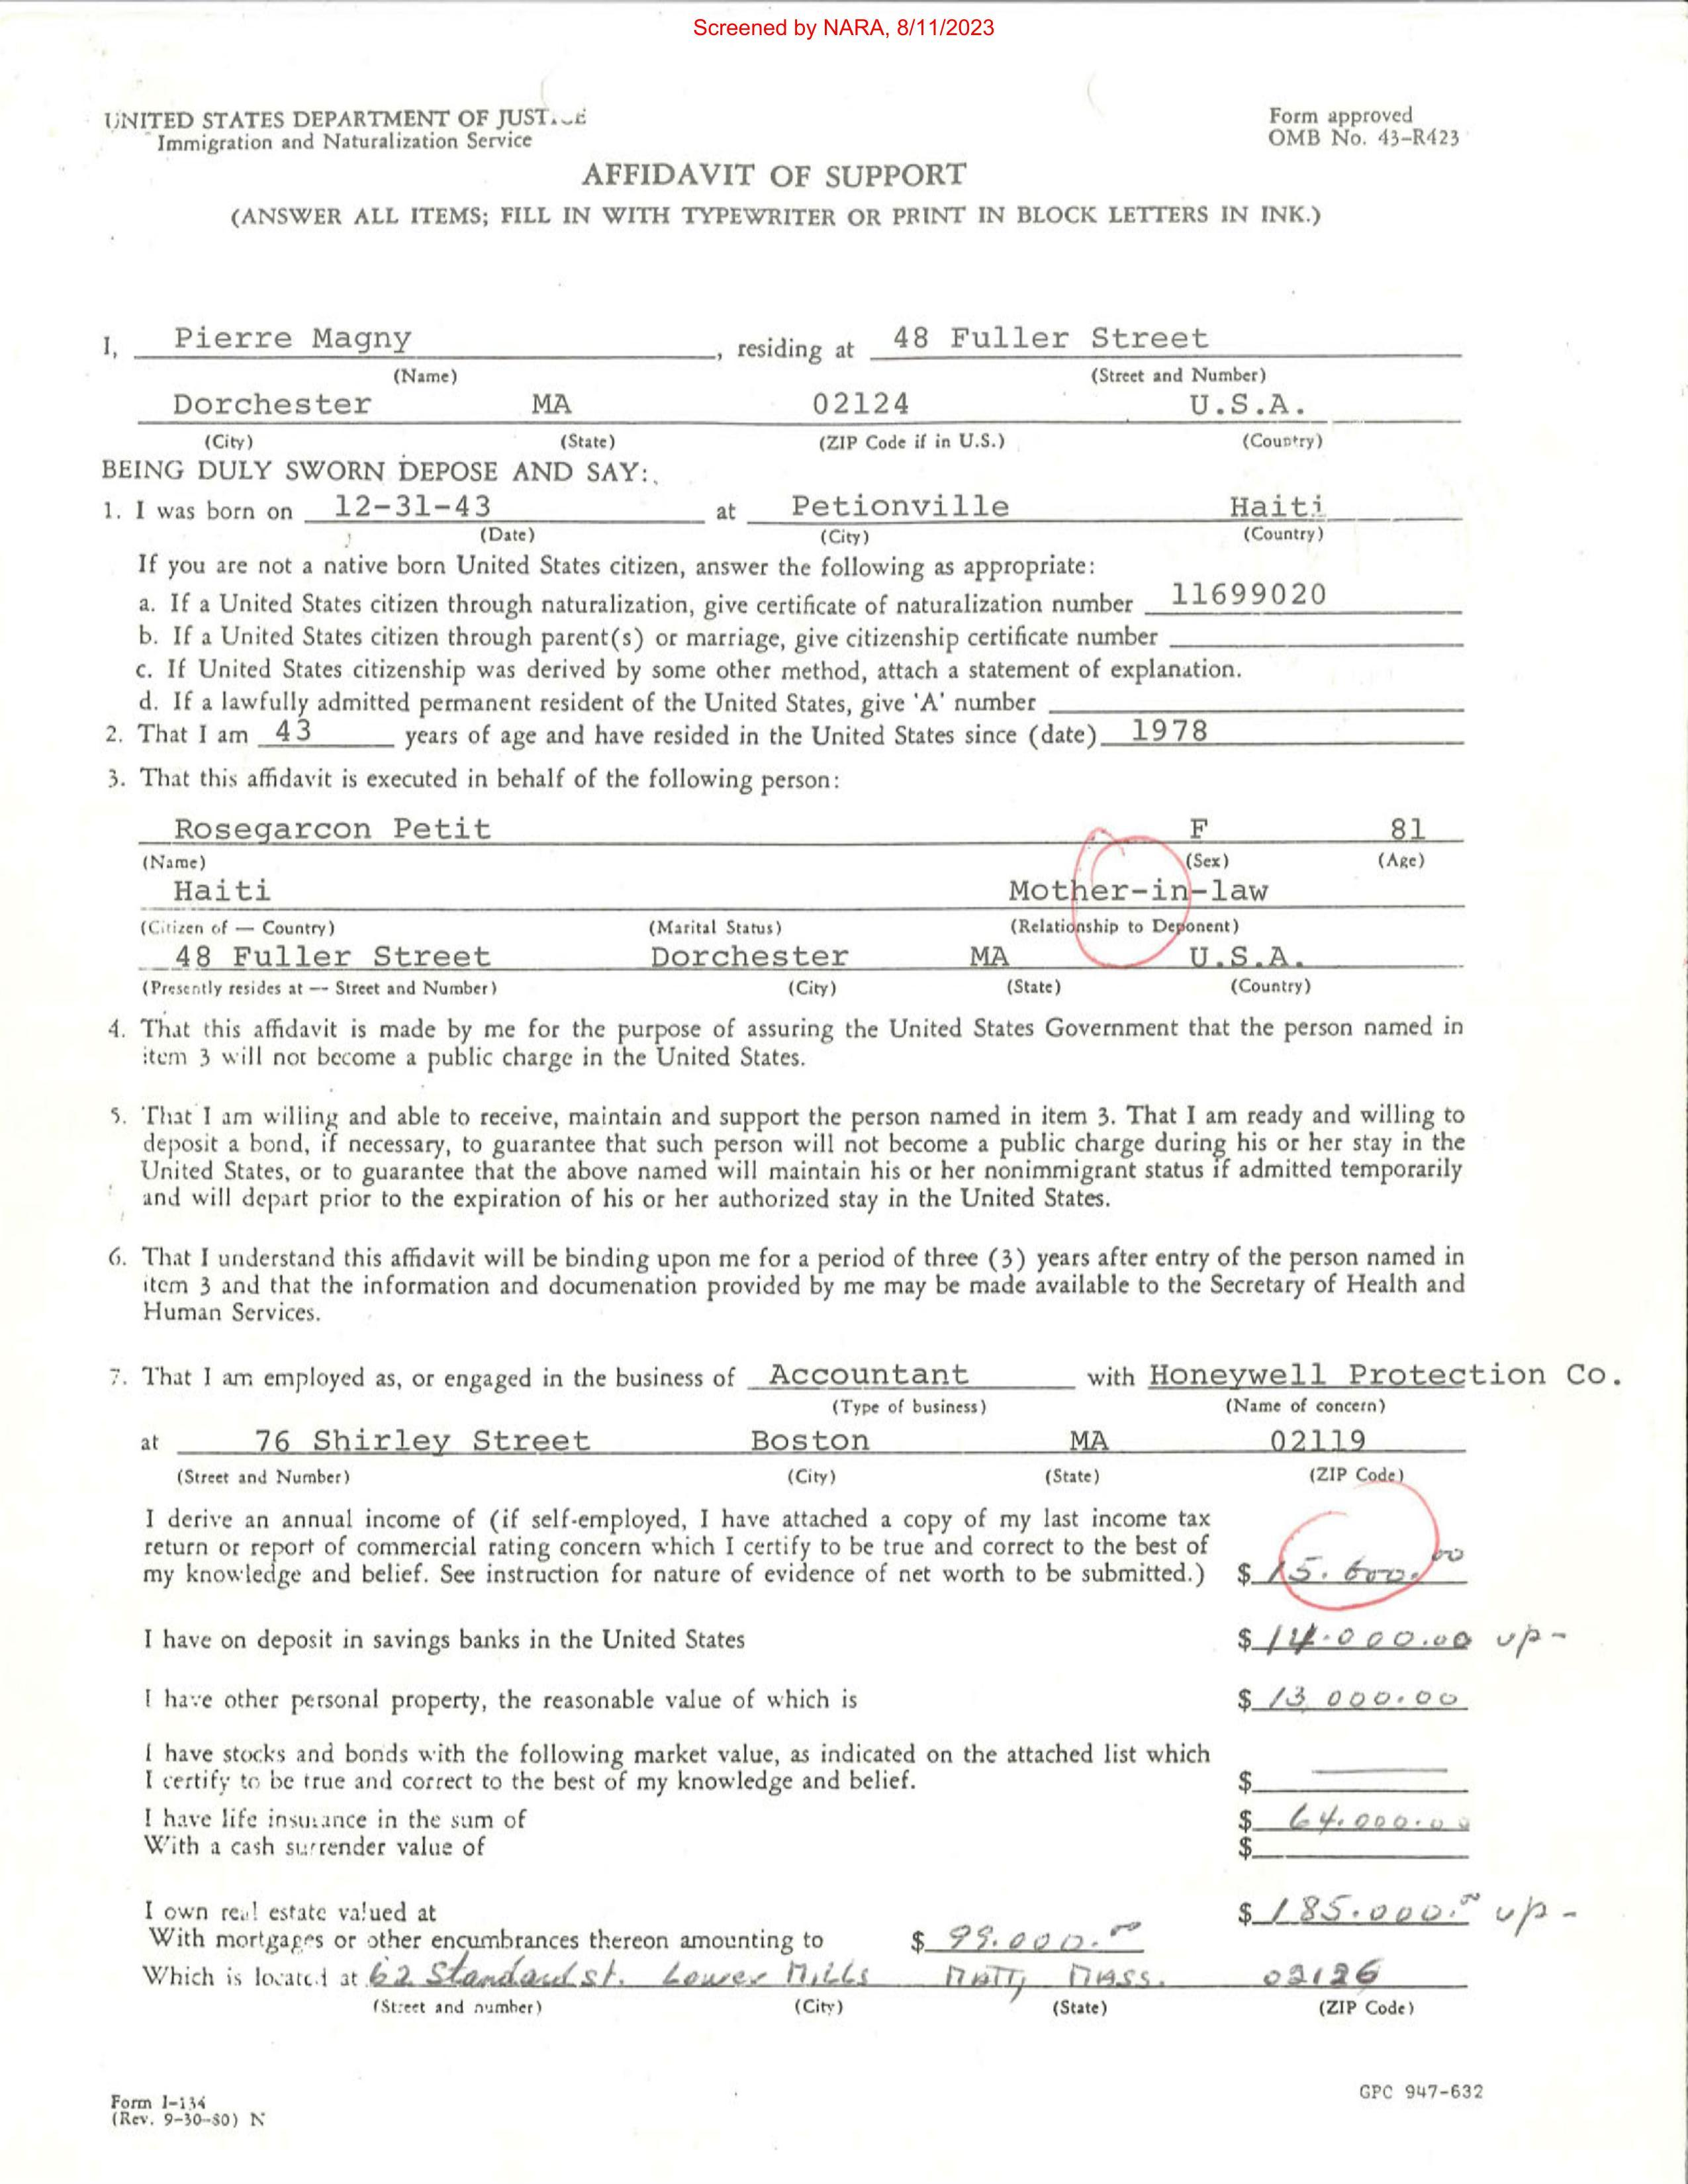 Screened by NARA, 8/11/2023
UNITED STATES DEPARTMENT OF JUSTICE
Immigration and Naturalization Service
Form approved
OMB No. 43-R423
AFFIDAVIT OF SUPPORT
(ANSWER ALL ITEMS; FILL IN WITH TYPEWRITER OR PRINT IN BLOCK LETTERS IN INK.)
I, Pierre Magny, residing at 48 Fuller Street
(Name) (Street and Number)
Dorchester MA 02124 U.S.A.
(City) (State) (ZIP Code if in U.S.) (Country)
BEING DULY SWORN DEPOSE AND SAY:
1. I was born on 12-31-43 at Petionville Haiti
(Date) (City) (Country)
If you are not a native born United States citizen, answer the following as appropriate:
a. If a United States citizen through naturalization, give certificate of naturalization number 11699020
b. If a United States citizen through parent(s) or marriage, give citizenship certificate number
c. If United States citizenship was derived by some other method, attach a statement of explanation.
d. If a lawfully admitted permanent resident of the United States, give 'A' number
2. That I am 43 years of age and have resided in the United States since (date) 1978
3. That this affidavit is executed in behalf of the following person:
Rosegarcon Petit F 81
(Name) (Sex) (Age)
Haiti Mother-in-law
(Citizen of — Country) (Marital Status) (Relationship to Deponent)
48 Fuller Street Dorchester MA U.S.A.
(Presently resides at — Street and Number) (City) (State) (Country)
4. That this affidavit is made by me for the purpose of assuring the United States Government that the person named in
item 3 will not become a public charge in the United States.
5. That I am willing and able to receive, maintain and support the person named in item 3. That I am ready and willing to
deposit a bond, if necessary, to guarantee that such person will not become a public charge during his or her stay in the
United States, or to guarantee that the above named will maintain his or her nonimmigrant status if admitted temporarily
and will depart prior to the expiration of his or her authorized stay in the United States.
6. That I understand this affidavit will be binding upon me for a period of three (3) years after entry of the person named in
item 3 and that the information and documenation provided by me may be made available to the Secretary of Health and
Human Services.
7. That I am employed as, or engaged in the business of Accountant with Honeywell Protection Co.
(Type of business) (Name of concern)
at 76 Shirley Street Boston MA 02119
(Street and Number) (City) (State) (ZIP Code)
I derive an annual income of (if self-employed, I have attached a copy of my last income tax
return or report of commercial rating concern which I certify to be true and correct to the best of
my knowledge and belief. See instruction for nature of evidence of net worth to be submitted.) $ 15.600.00
I have on deposit in savings banks in the United States $ 14.000.00 up-
I have other personal property, the reasonable value of which is $ 13 000.00
I have stocks and bonds with the following market value, as indicated on the attached list which
I certify to be true and correct to the best of my knowledge and belief. $
I have life insurance in the sum of $ 64.000.00
With a cash surrender value of $
I own real estate valued at $ 185.000.00 up-
With mortgages or other encumbrances thereon amounting to $ 99.000.00
Which is located at 62 Standard st. Lower Mills Matt, Mass. 02126
(Street and number) (City) (State) (ZIP Code)
Form I-134
(Rev. 9-30-80) N
GPC 947-632